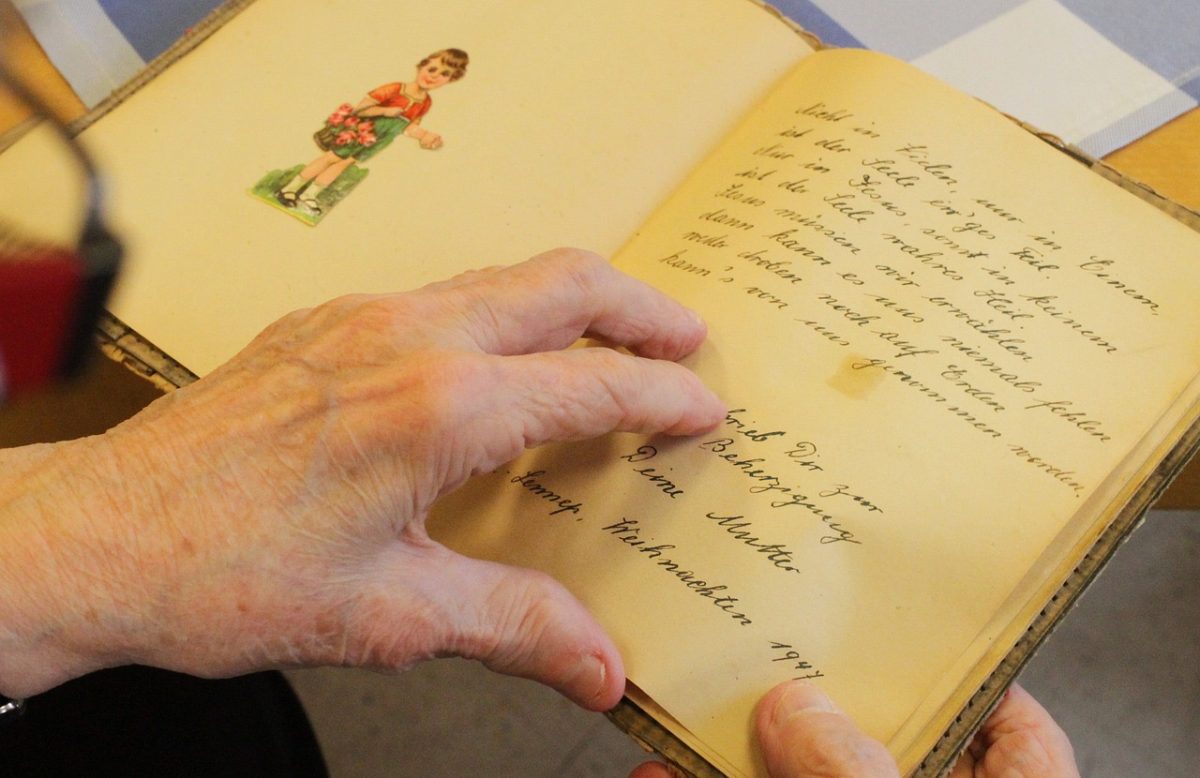 Nicht in Vielen, nur in Einem,
ist der Seele ew'ges Teil
Nur in Jesus, sonst in keinem
ist der Seele wahres Heil.
Jesus müssen wir erwählen
dann kann es uns niemals fehlen
weder droben noch auf Erden
kann's von uns genommen werden.
schrieb Dir zur
Beherzigung
Deine Mutter
Lennep, Weihnachten 1947